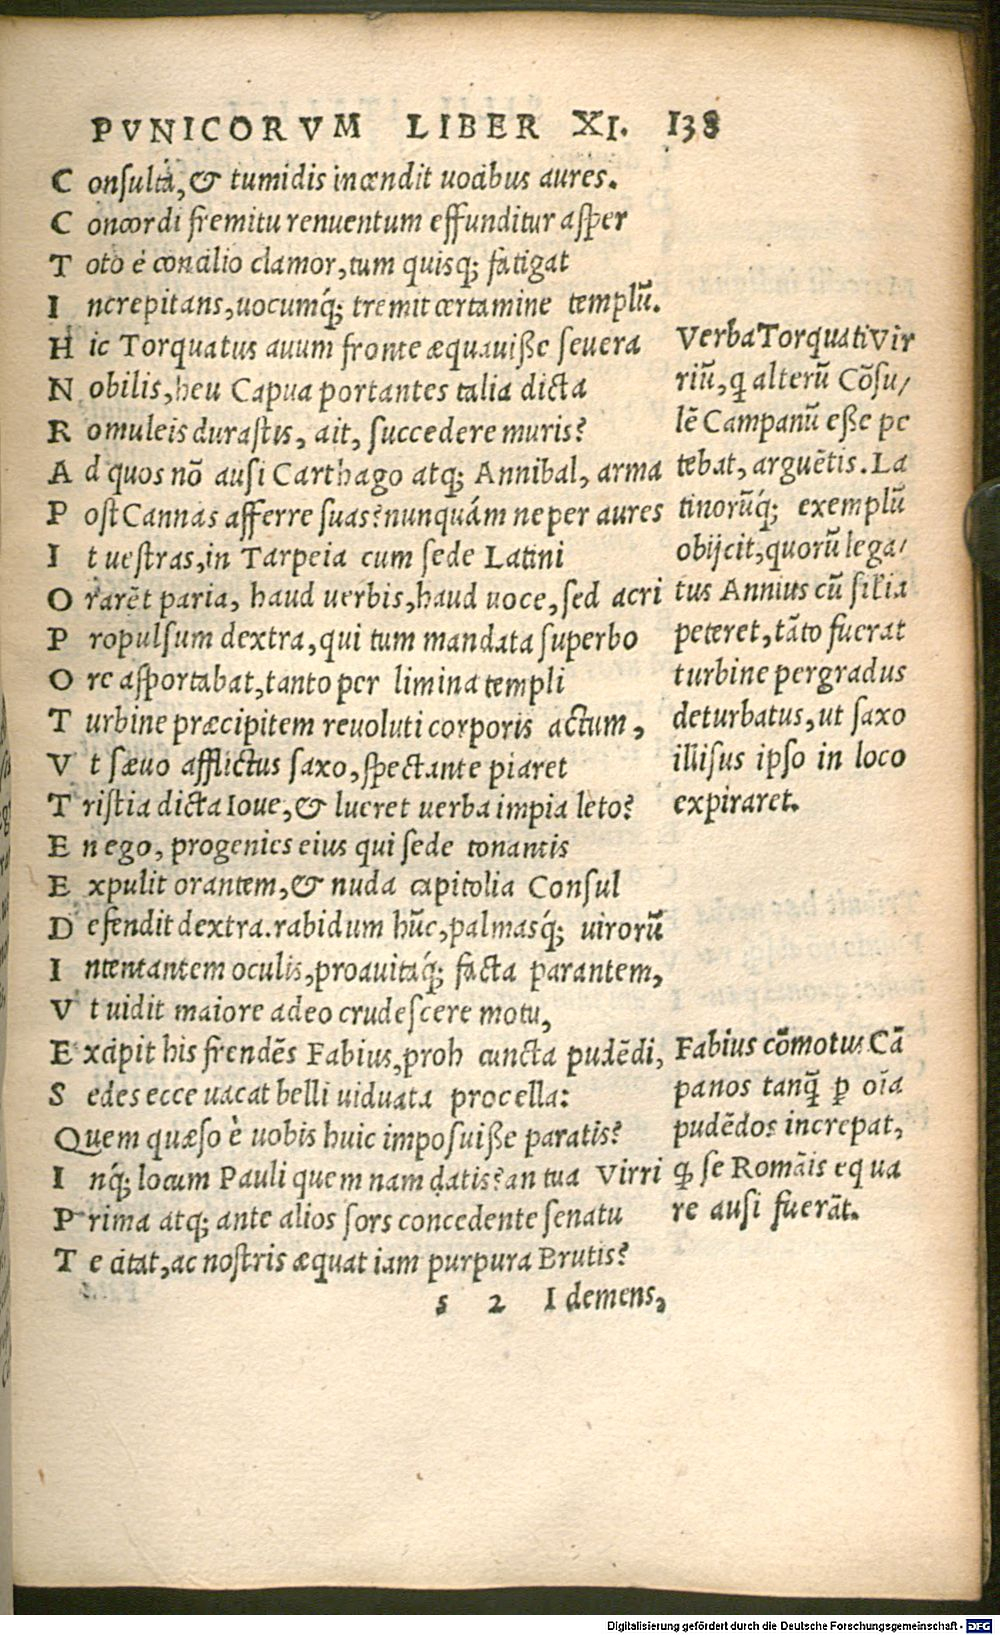 PVNICORVM LIBER XI. 138
Consulta, & tumidis incendit uocibus aures.
Concordi fremitu renuentum effunditur asper
Toto è concilio clamor, tum quisq; fatigat
Increpitans, uocumq́; tremit certamine templū.
Hic Torquatus auum fronte æquauiße seuera
Nobilis, heu Capua portantes talia dicta
Romuleis durastis, ait, succedere muris?
Ad quos nō ausi Carthago atq; Annibal, arma
Post Cannas afferre suas? nunquám ne per aures
It uestras, in Tarpeia cum sede Latini
Orarēt paria, haud uerbis, haud uoce, sed acri
Propulsum dextra, qui tum mandata superbo
Ore asportabat, tanto per limina templi
Turbine præcipitem reuoluti corporis actum,
Vt sæuo afflictus saxo, spectante piaret
Tristia dicta Ioue, & lueret uerba impia leto?
En ego, progenies eius qui sede tonantis
Expulit orantem, & nuda capitolia Consul
Defendit dextra. rabidum hūc, palmasq́; uirorū
Intentantem oculis, proauitaq́; facta parantem,
Vt uidit maiore adeo crudescere motu,
Excipit his frendēs Fabius, proh cuncta pudēdi,
Sedes ecce uacat belli uiduata procella:
Quem quæso è uobis huic imposuiße paratis?
Inq́; locum Pauli quem nam datis? an tua Virri
Prima atq; ante alios sors concedente senatu
Te citat, ac nostris æquat iam purpura Brutis?
s 2 I demens,
Verba Torquati Vir
riū, q̄ alterū Cōsu/
lē Campanū eße pe
tebat, arguētis. La
tinorūq́; exemplū
obijcit, quorū lega/
tus Annius cū silia
peteret, tāto fuerat
turbine per gradus
deturbatus, ut saxo
illisus ipso in loco
expiraret.
Fabius cōmotus Cā
panos tanq̄ ꝑ oīa
pudēdos increpat,
q̄ se Romāis equa
re ausi fuerāt.
Digitalisierung gefördert durch die Deutsche Forschungsgemeinschaft - DFG